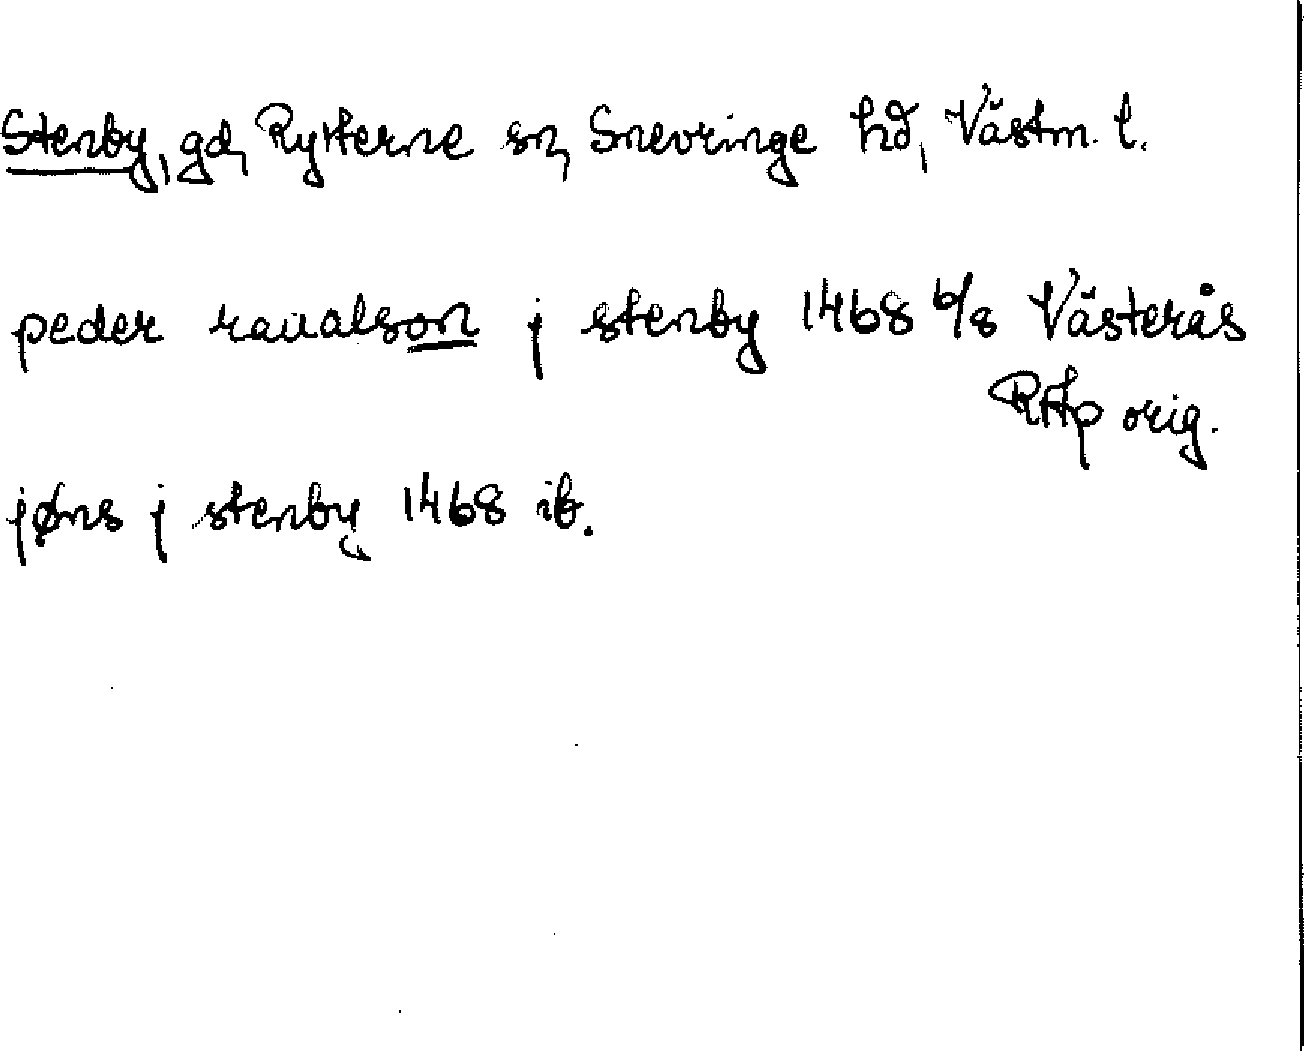 Stenby, gd, Rytterne sn, Snevringe hd, Västm. l.
peder raualson j stenby 1468 6/8 Västerås
RAp orig.
jøns j stenby 1468 ib.